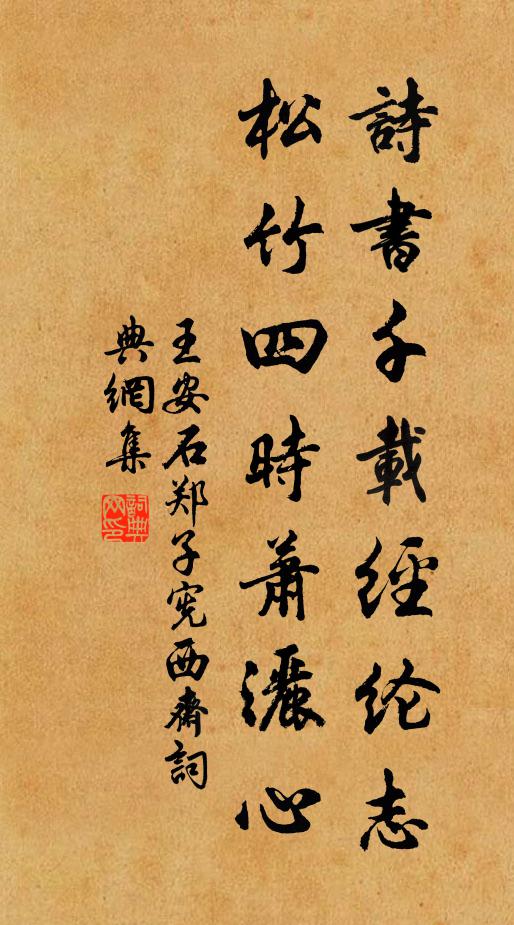 詩書千載經纶志
松竹四時蕭灑心
王安石郑子宪西齋詞
典網集
詞典网印